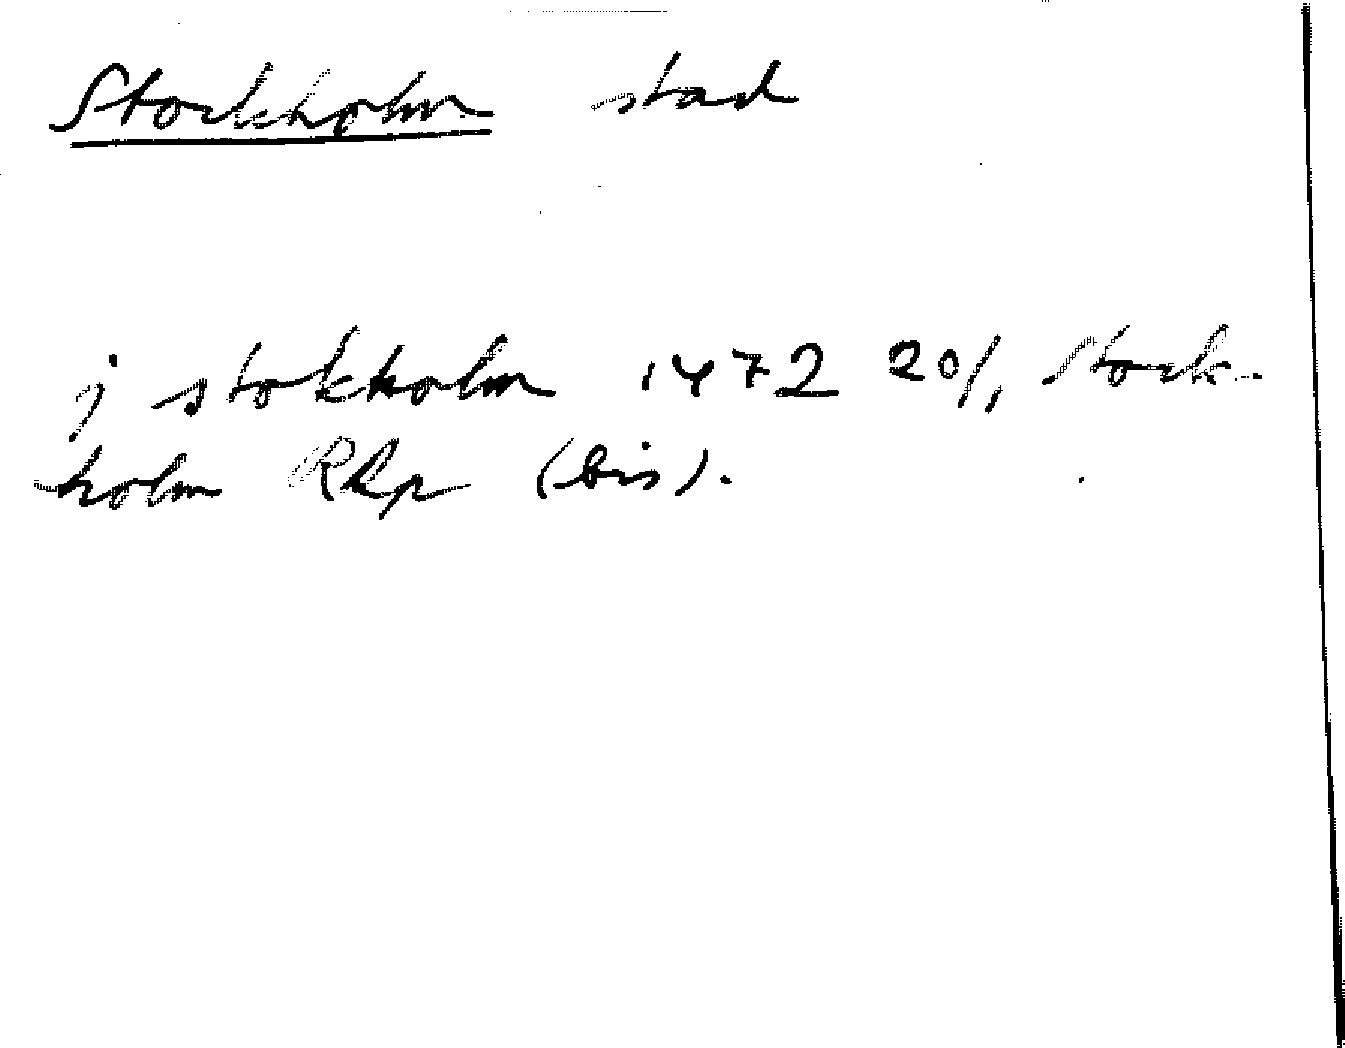 Stockholm stad
j stokholm 1472 20/1 Stock-
holm RAp (bis).